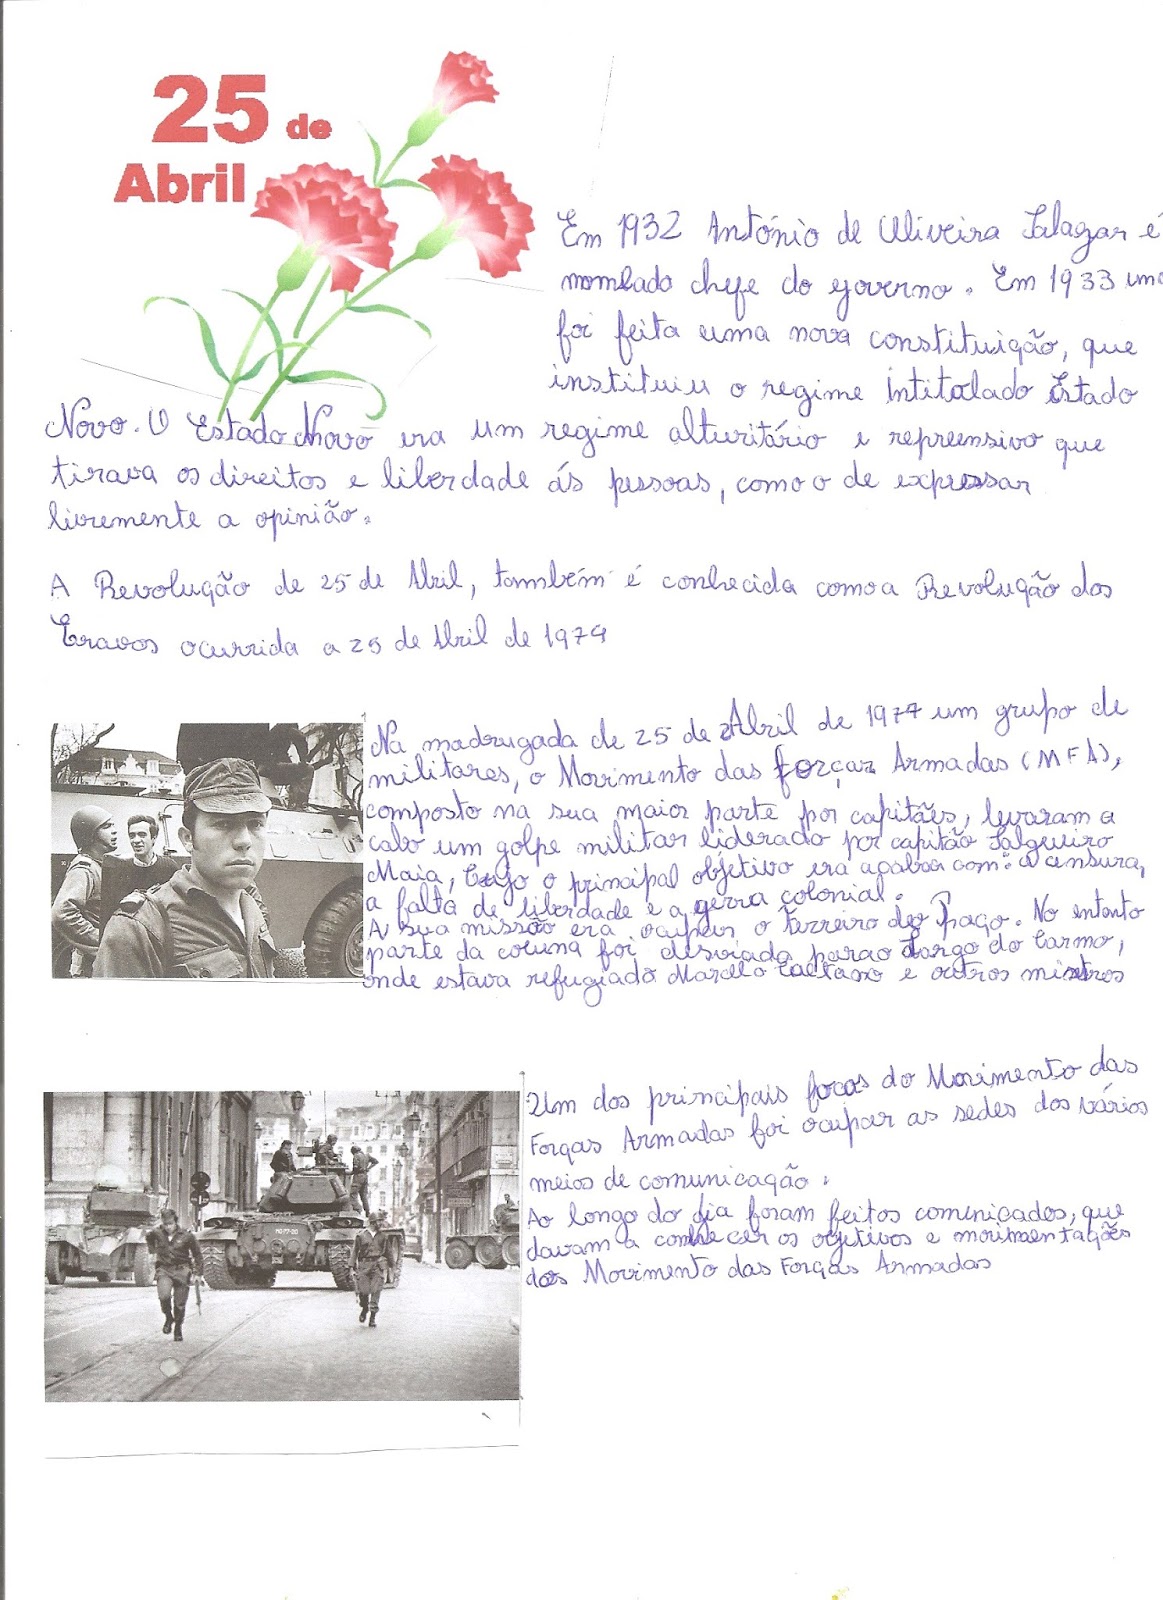 25 de
Abril
Em 1932 António de Oliveira Salazar é
nomeado chefe do governo. Em 1933 uma
foi feita uma nova constituição, que
instituiu o regime intitolado Estado
Novo. O Estado Novo era um regime alturitário e repreensivo que
tirava os direitos e liberdade ás pessoas, como o de expressar
livremente a opinião.
A Revolução de 25 de Abril, também é conhecida como a Revolução dos
Cravos ocurrida a 25 de Abril de 1974
Na madrugada de 25 de Abril de 1974 um grupo de
militares, o Movimento das forças Armadas (MFA),
composto na sua maior parte por capitães, levaram a
cabo um golpe militar liderado por capitão Salgueiro
Maia, cujo o principal objétivo era acabar com a censura,
a falta de liberdade e a gerra colonial.
A sua missão era ocupar o Terreiro do Paço. No entanto
parte da coluna foi desviada para o Largo do Carmo,
onde estava refugiado Marcelo Caetano e outros mistros
Um dos principais focos do Movimento das
Forças Armadas foi ocupar as sedes dos vários
meios de comunicação.
Ao longo do dia foram feitos comunicados, que
davam a conhecer os objetivos e movimentações
dos Movimento das Forças Armadas